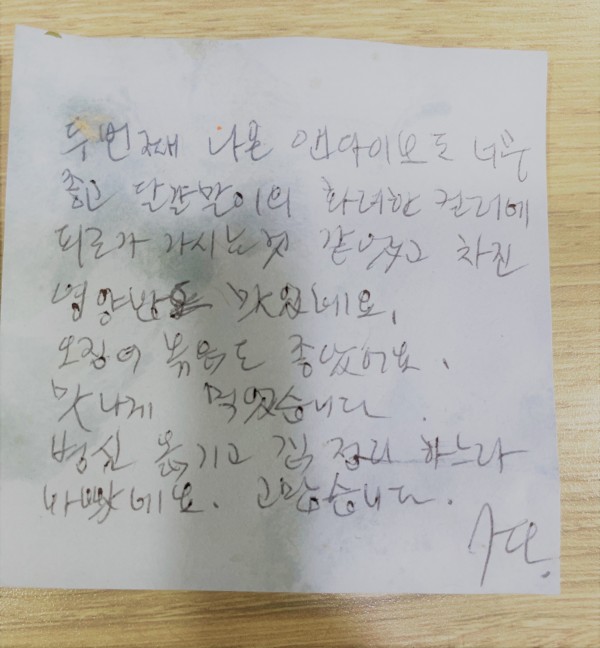 두번째 나온 앤다이보도 너무
좋고 달걀말이의 화려한 컬러에
피로가 가시는것 같았고 차진
영양밥도 맛있네요,
오징어 볶음도 좋았어요.
맛나게 먹었습니다.
병실 옮기고 짐 정리 하느라
바빴네요. 고맙습니다.